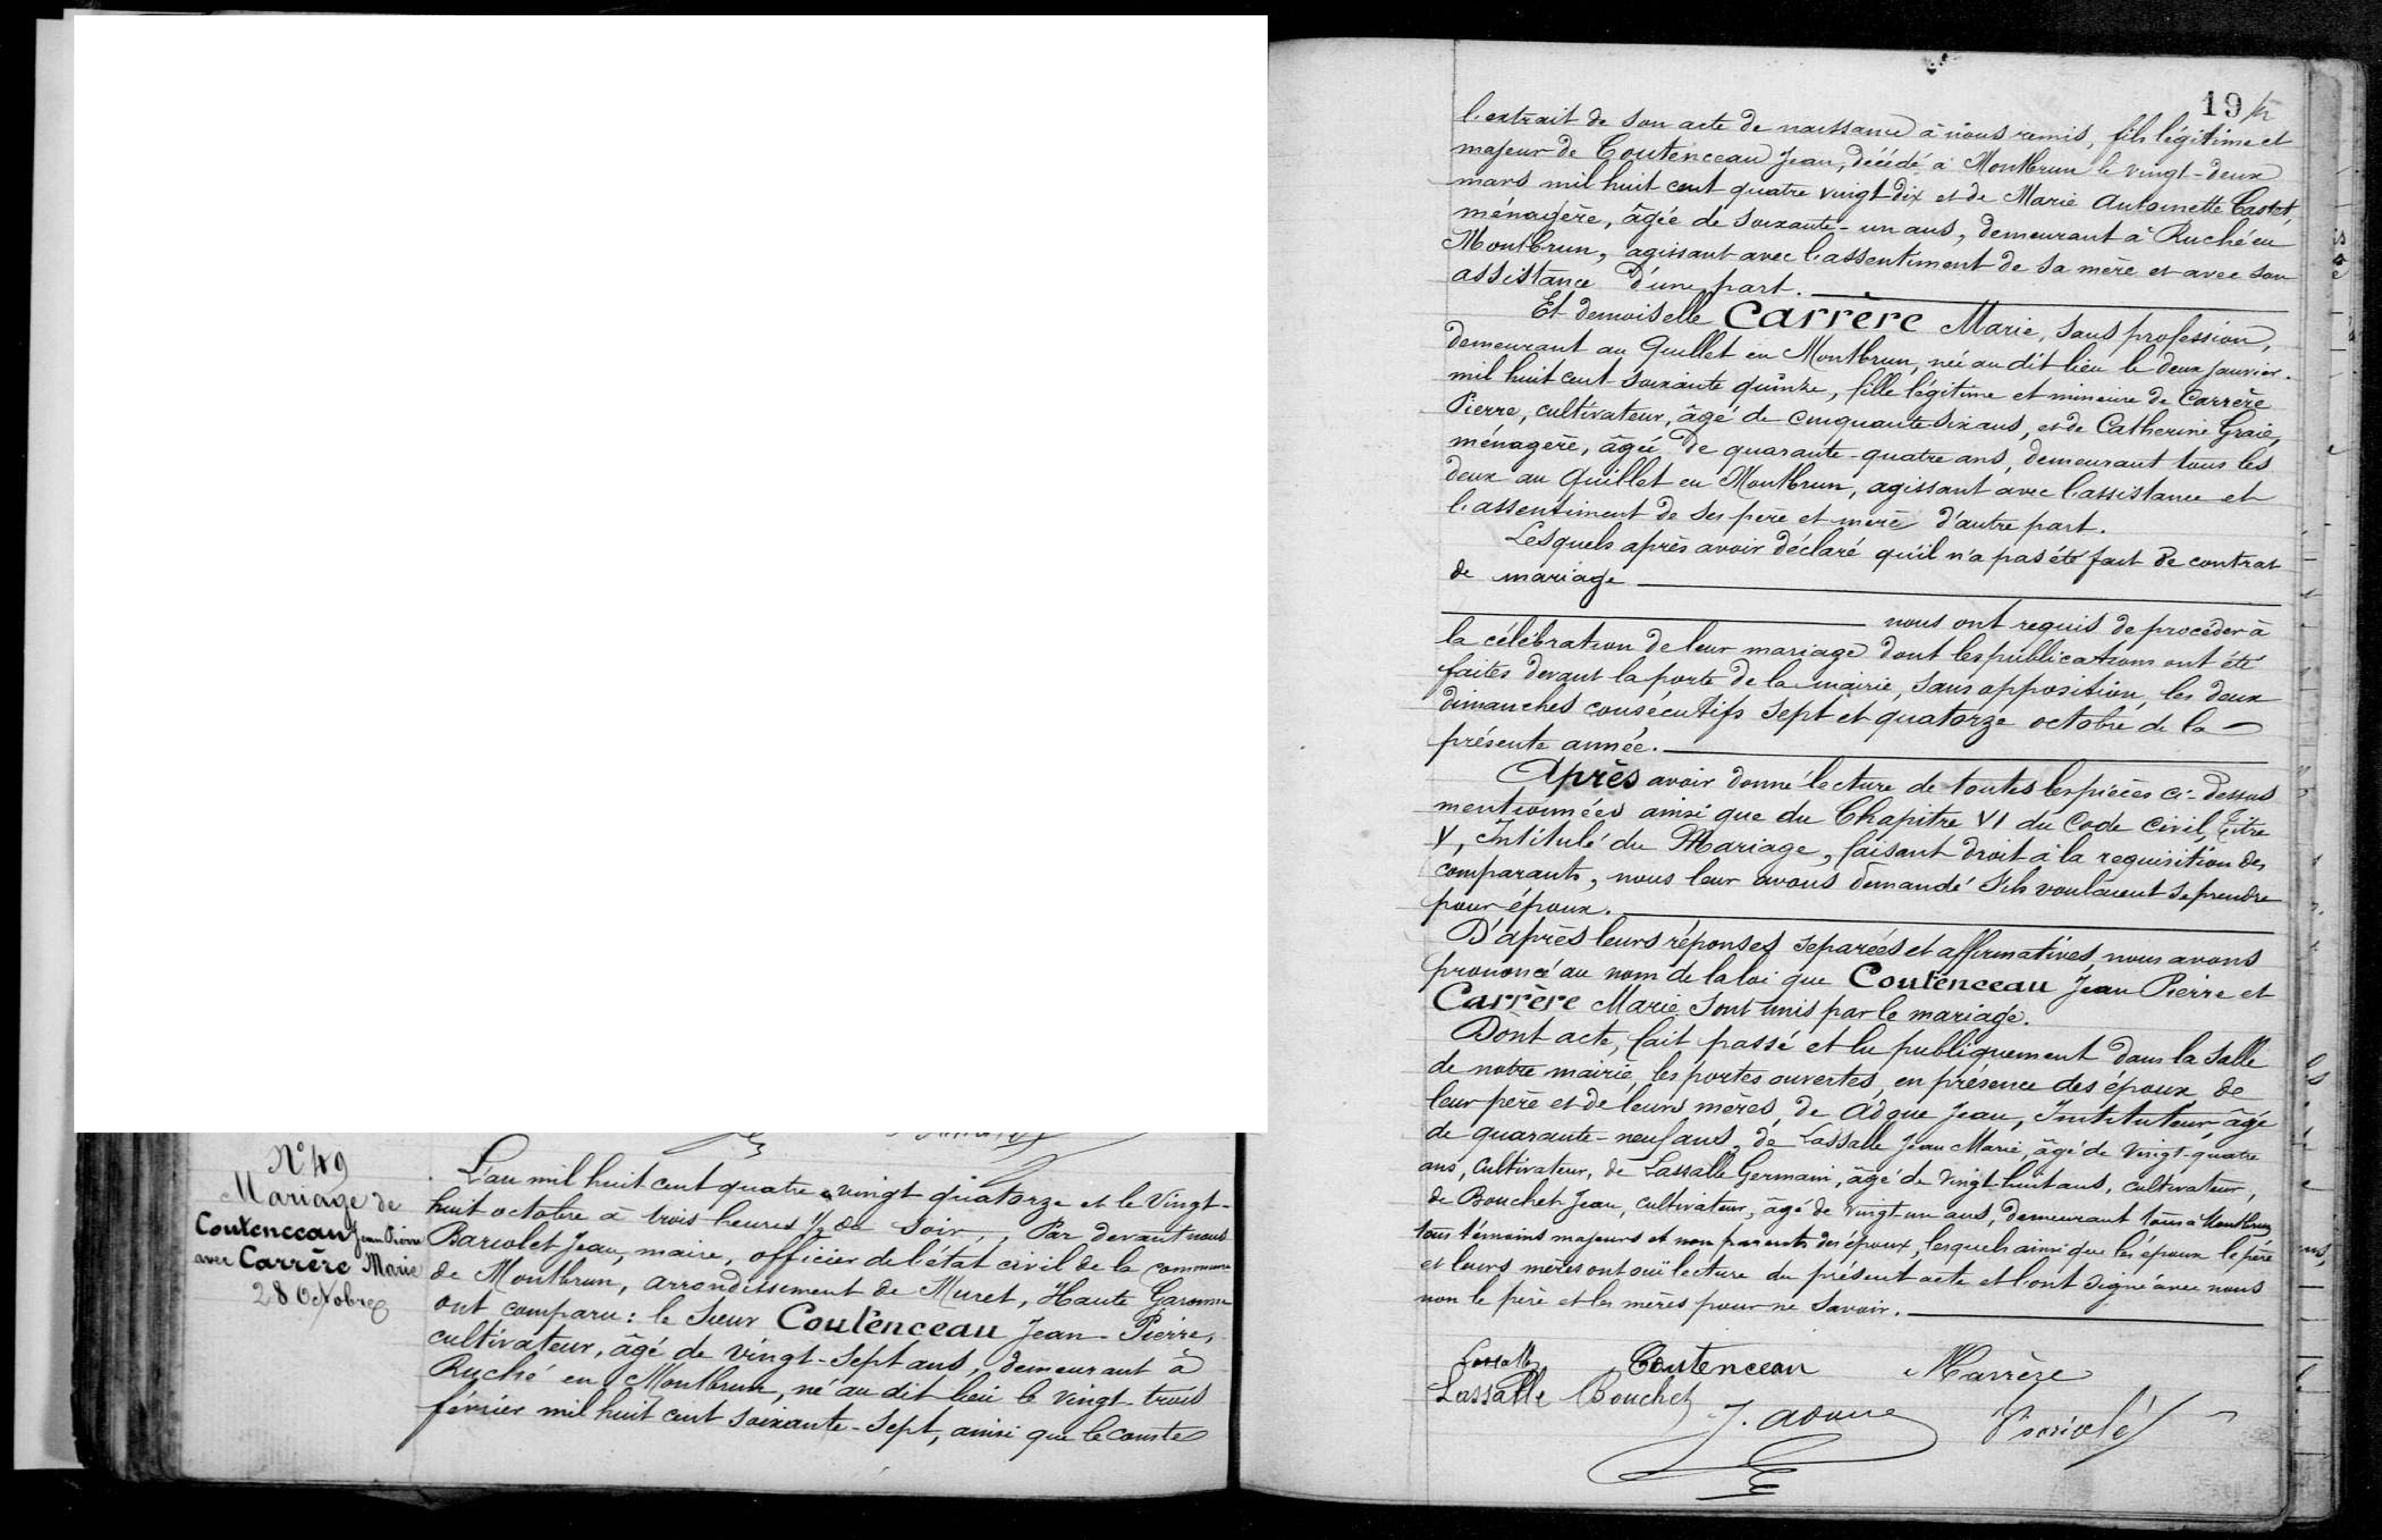 N° 49
Mariage de
Coutenceau Jean Pierre
avec Carrère Marie
28 Octobre
L'an mil huit cent quatre vingt quatorze et le Vingt-
huit octobre à trois heures 1/2 du Soir, Par devant nous
Jean, maire, officier de l'état civil de la commune
de Montbrun, arrondissement de Muret, Haute Garonne
ont comparu : le Sieur Coutenceau Jean-Pierre,
cultivateur, âgé de vingt-sept ans, demeurant à
Ruché en Montbrun, né au dit lieu le vingt-trois
février mil huit cent soixante-sept, ainsi que le constate
19
l'extrait de son acte de naissance à nous remis, fils légitime et
majeur de Coutenceau Jean, décédé à Montbrun le vingt-deux
mars mil huit cent quatre vingt-dix et de Marie Antoinette Castet,
ménagère, âgée de soixante-un ans, demeurant à Ruché en
Montbrun, agissant avec l'assentiment de sa mère et avec son
assistance d'une part.
Et demoiselle Carrère Marie, sans profession,
demeurant au Quillet en Montbrun, née au dit lieu le deux janvier
mil huit cent soixante quinze, fille légitime et mineure de Carrère
Pierre, cultivateur, âgé de cinquante six ans, et de Catherine
ménagère, âgée de quarante-quatre ans, demeurant tous les
deux au Quillet en Montbrun, agissant avec l'assistance et
l'assentiment de ses père et mère d'autre part.
Lesquels après avoir déclaré qu'il n'a pas été fait de contrat
de mariage
nous ont requis de procéder à
la célébration de leur mariage dont les publications ont été
faites devant la porte de la mairie, sans opposition, les deux
dimanches consécutifs sept et quatorze octobre de la
présente année.
Après avoir donné lecture de toutes les pièces ci-dessus
mentionnées ainsi que du Chapitre VI du Code Civil, Titre
V, Intitulé du Mariage, faisant droit à la requisition des
comparants, nous leur avons demandé s'ils voulaient se prendre
pour époux.
D'après leurs réponses séparées et affirmatives, nous avons
prononcé au nom de la loi que Coutenceau Jean Pierre et
Carrère Marie sont unis par le mariage.
Dont acte, fait passé et lu publiquement dans la salle
de notre mairie, les portes ouvertes, en présence des époux, de
leur père et de leurs mères, de Adoue Jean, Instituteur, âgé
de quarante-neuf ans, de Lassalle Jean Marie, âgé de vingt-quatre
ans, cultivateur, de Lassalle Germain, âgé de vingt-huit ans, cultivateur,
de Bouchet Jean, cultivateur, âgé de vingt-un ans, demeurant tous à Montbrun,
tous témoins majeurs et non parents des époux, lesquels ainsi que les époux le père
et leurs mères ont ouï lecture du présent acte et l'ont signé avec nous
non le père et les mères pour ne savoir.
Lassalle Coutenceau Marrèze
Lassalle Bouchet
J. Adoue